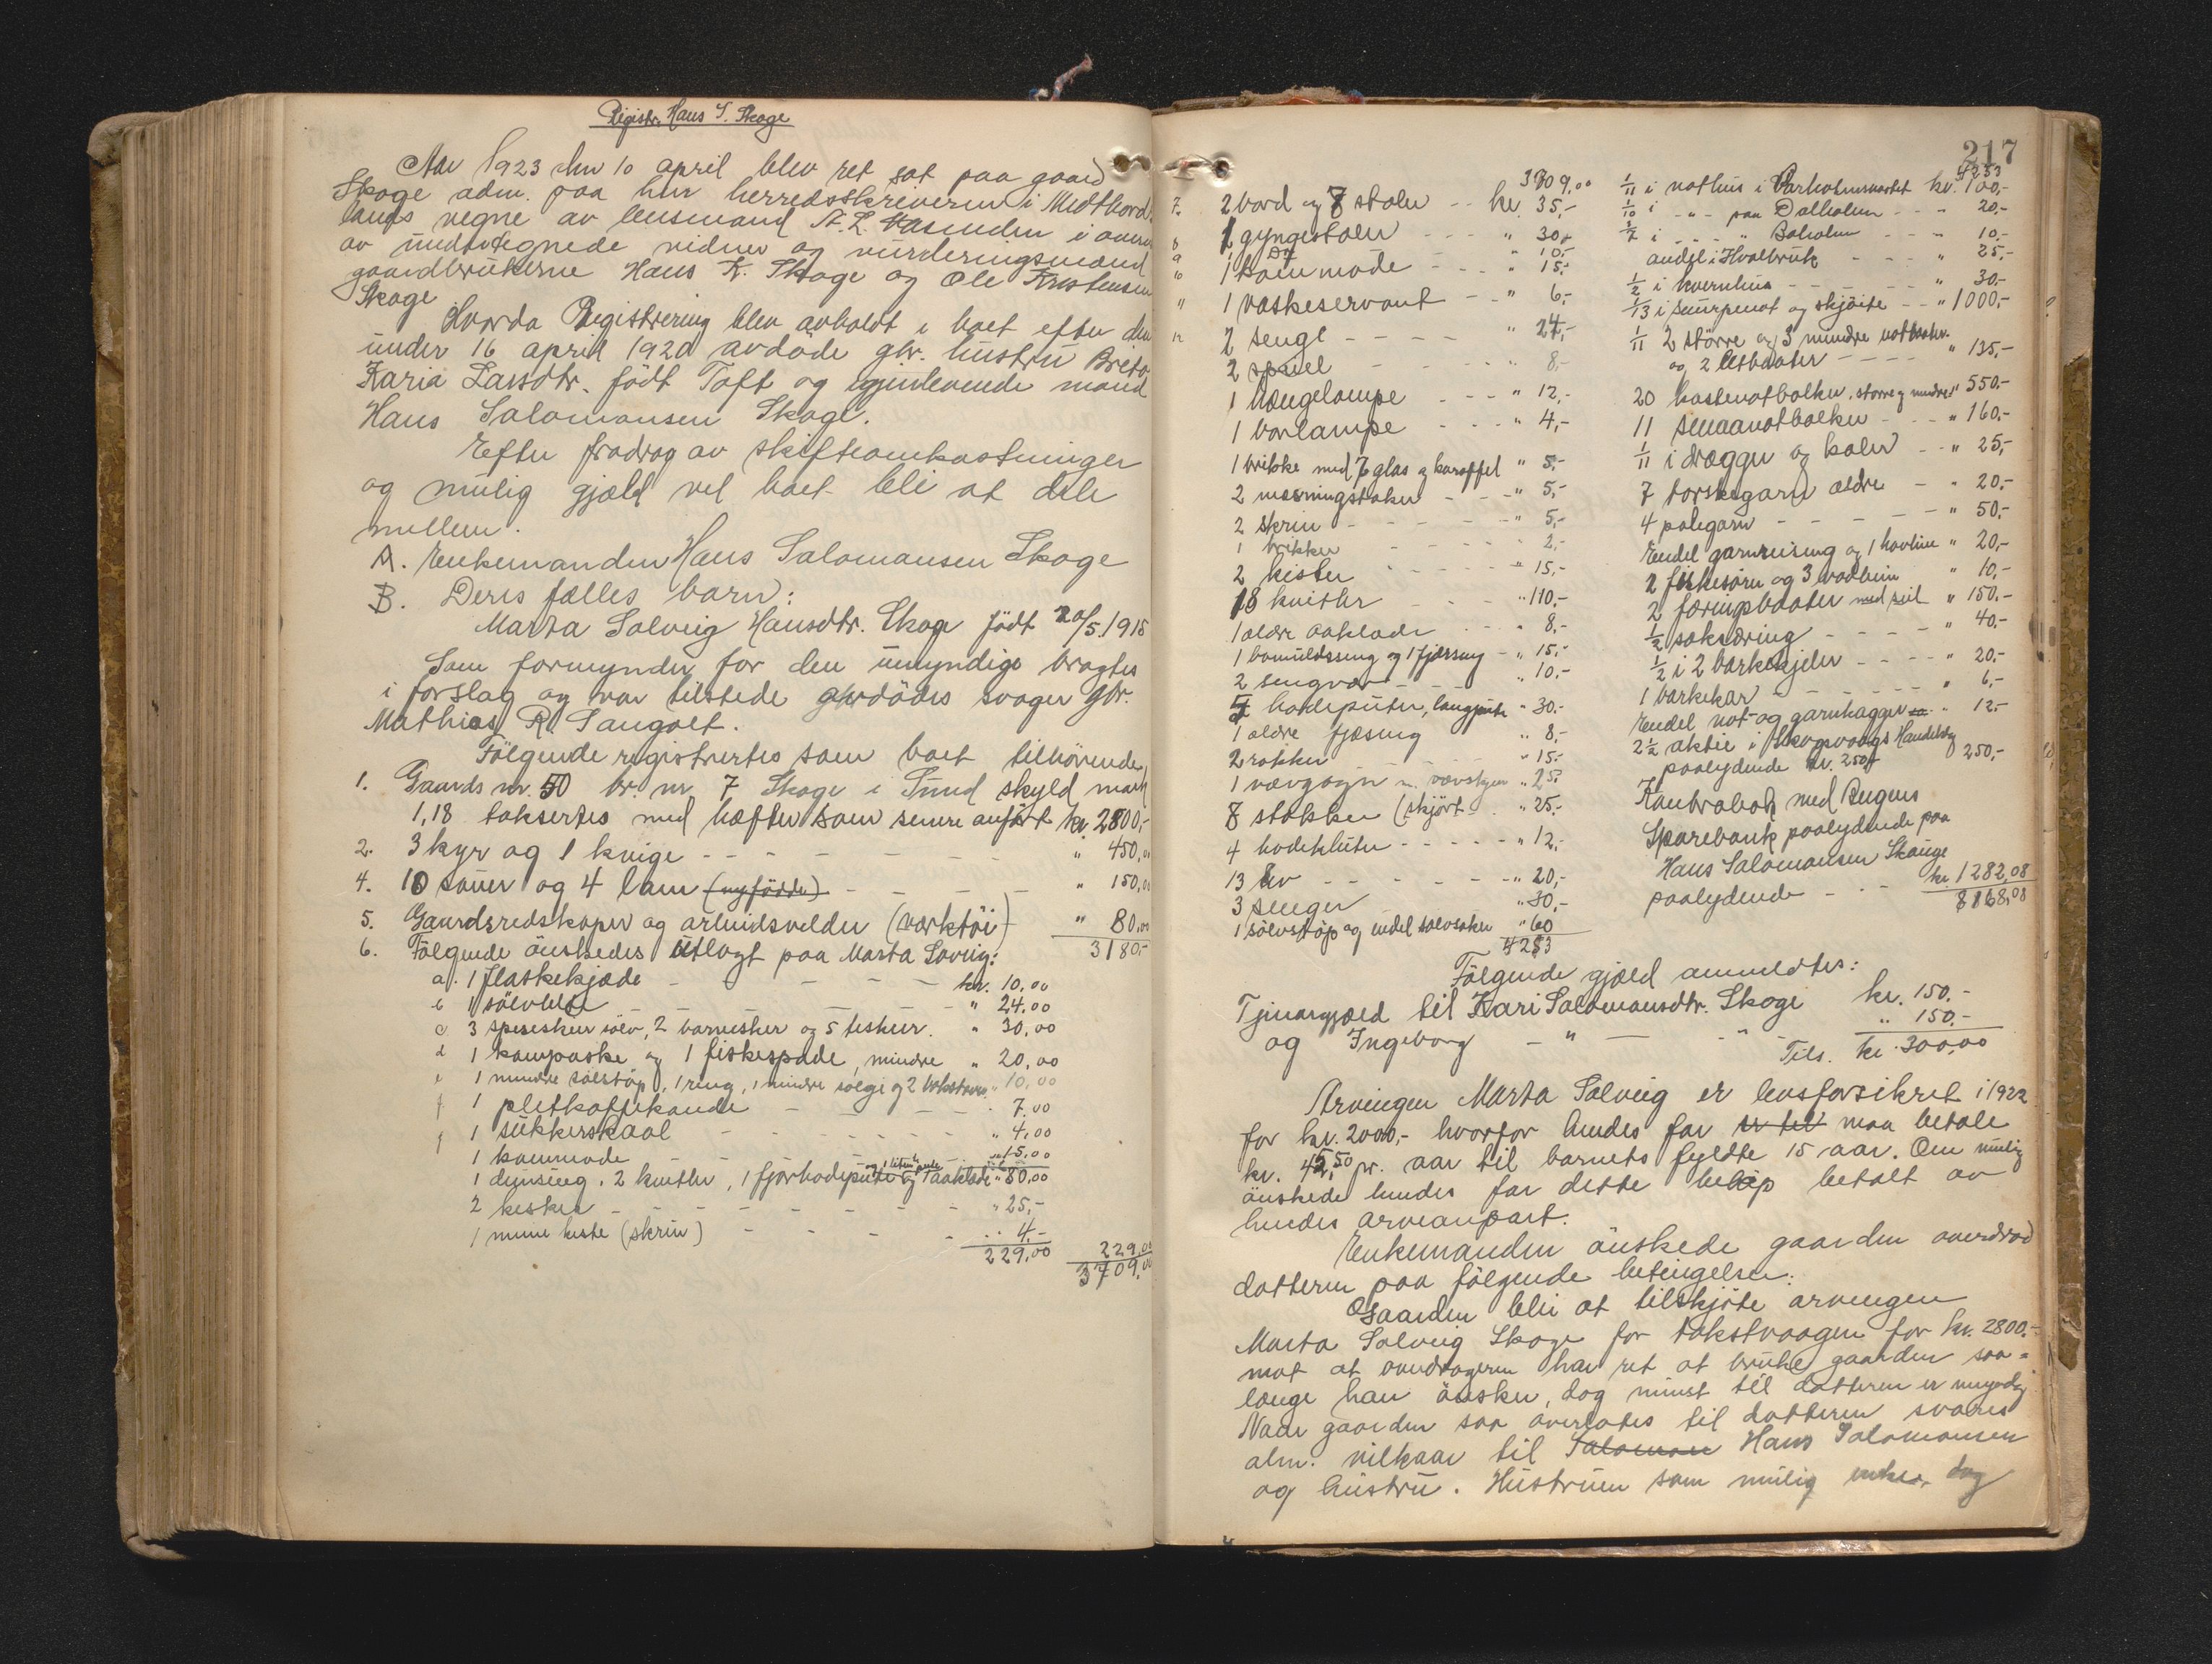 Registr. Hans S. Skoge
Aar 1923 den 10 april blev ret sat paa gaard
Skoge adm. paa hrr herredsskriveren i Midthord-
lands vegne av lensmand A. L. i overvær
av undertegnede vidner og vurderingsmænd
gaardbrukerne Hans K. Skoge og Ole Kristensen
Skoge
Hvorda Registrering blev avholdt i boet efter den
under 16 april 1920 avdöde gbr. hustru Breta
Karia Larsdtr. födt Toft og gjenlevende mand
Hans Salomonsen Skoge.
Efter fradrag av skifteomkostninger
og mulig gjæld vil boet bli at dele
mellem:
A. Enkemanden Hans Salomonsen Skoge
B. Deres fælles barn:
Marta Solveig Hansdtr. Skoge födt 20/5.1915
Som formynder for den umyndige bragtes
i forslag og var tilstede avdödes svoger gbr.
Mathias R. Sangolt.
Fölgende registrertes som boet tilhörende
1. Gaards nr. 50 br. nr. 7 Skoge i Sund skyld mark
1,18 taksertes med hæfter som senere anfört kr. 2800,-
2. 3 kyr og 1 kvige - - - " 450,00
4. 10 sauer og 4 lam (nyfödde) - - " 150,00
5. Gaardsredskaper og arbeidsvelder (verktöi) " 80,00
6. Fölgende önskedes utlagt paa Marta Solveig: 3180.-
a. 1 flaskekjæde - - - kr. 10,00
b 1 sölvbelte - - " 24.00
c 3 spiseskeer sölv, 2 barneskeer og 5 teskeer. " 30,00
d 1 kampaske og 1 fiskespade, mindre " 20,00
e 1 mindre sölvstöp, 1 ring, 1 mindre sölgje og 2 " 10,00
f 1 pletkaffekande - - - 7.00
g 1 sukkerskaal - - - " 4,00
1 kommode - - " 15.00
1 dunseng, 2 kvitler, 1 fjörhodepute og 1 liten pute og 1 aaklæde " 80,00
2 kister - - - " 25,-
1 mine kiste (skrin) - - - 4.-
229,00 229,00
3709,00
217
3709,00
7. 2 bord og 8 stoler - - kr. 35,-
8 2 gyngestoler - - - " 30,-
9 " 10,-
10 1 kommode - - - " 15,-
11 1 vaskeservant - - " 6,-
12 2 senge - - - - " 24,-
2 speil - - - " 8,-
1 hængelampe - - - " 12,-
1 borlampe - - - " 4,-
1 brikke med 7 glas og karaffel " 5,-
2 messingstaker - - - " 5,-
2 skrin - - - - - " 5,-
1 brikker - - - - 2,-
2 kister - - - - " 15,-
18 kvitler - - - " 110,-
1 ældre aaklæde - - - " 8,-
1 bomuldsseng og 1 fjærseng - " 15,-
2 sengvar - - - " 10,-
5 hodeputer, langpute " 30.-
1 ældre fjæseng " 8,-
2 rokker " 15.-
1 vævgogn m. vævskyer " 25.-
8 stakker (skjört - - " 25.-
4 hodekluter - - - - - " 12,-
13 liv - - - - - - - " 20,-
3 senger " 30,-
1 sölvstöp og endel sölvsaker " 60
4253
4253
1/11 i nothus i Varholmsvartet kr. 100,-
1/10 i - " - paa Dalholm - - - " 20,-
1/7 i - - " Boholm - - - " 10,-
andel i Hvalbruk - - - " 25,-
1/2 i kvernhus - - - - " 30,-
1/13 i snurpenot og skjöite - - " 1000,-
1/11 2 större og 3 mindre notbaater.
og 2 letbaater - - - - " 135,-
20 kastenotbolker, större og mindre " 550.-
11 smaanotbolker - - - " 160.-
1/11 i drægger og kabler - - " 25,-
7 torskegarn ældre - " 20.-
4 palegarn - - - - - " 50.-
Endel garnreising og 1 havline " 20,-
2 fiskesörn og 3 vadbein " 10,-
2 færingsbaater med seil " 150.-
1/2 soksæring - - - - " 40.-
1/2 i 2 barkekjeler - - - " 20.-
1 barkekar - - - - - - " 6,-
Endel not- og garnhagger " 12.-
2 1/2 aktie i Skogsvaags Handelslag
paalydende kr. 250,- 250,-
Kontrabok med Bugens
Sparebank paalydende paa
Hans Salomonsen Skauge
paalydende - - - kr 1282,08
8168,08
Fölgende gjæld anmeldtes:
Tjenargjæld til Kari Salomonsdtr. Skoge kr. 150.-
og Ingeborg - " - - " - " 150.-
Tils. kr. 300,00
Arvingen Marta Solveig er livsforsikret i 1922
for kr. 2000,- hvorfor hendes far er til maa betale
kr. 45,50 pr. aar til barnets fyldte 15 aar. Om mulig
önskede hendes far dette belöp betalt av
hendes arveanpart.
Enkemanden önskede gaarden overdrad
datteren paa fölgende betingelser:
Gaarden blir at tilskjöte arvingen
Marta Solveig Skoge for takstvaagen for kr. 2800.-
mot at overdrageren har ret at bruke gaarden saa-
længe han önsker, dog minst til datteren er myndig
Naar gaarden saa overlates til datteren svares
alm. vilkaar til Salomon Hans Salomonsen
og hustru. Hustruen som mulig enke, dog